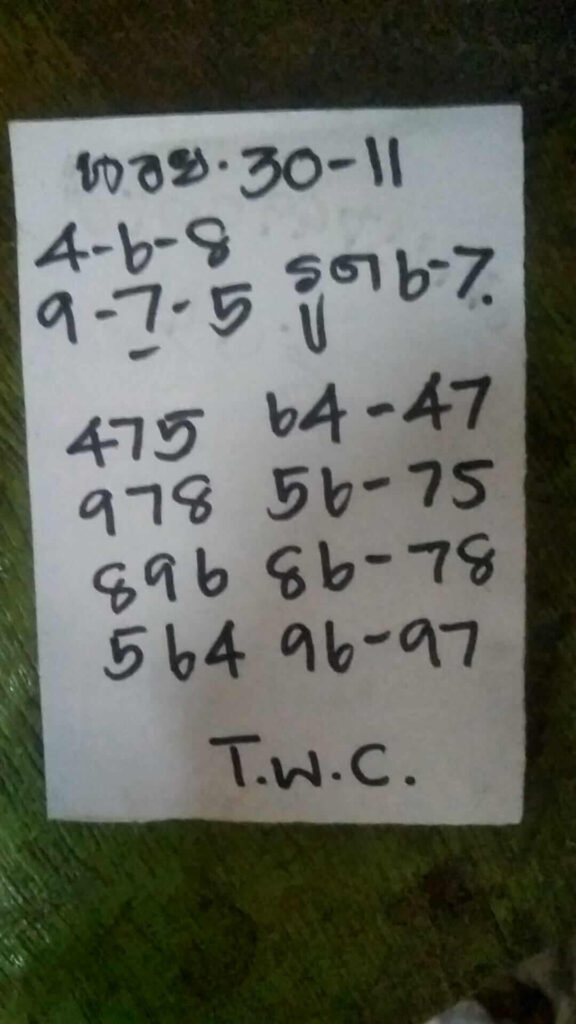 หวย. 30-11
4-6-8
9-7-5 รูด 6-7.
475 64-47
978 56-75
896 86-78
564 96-97
T.W.C.